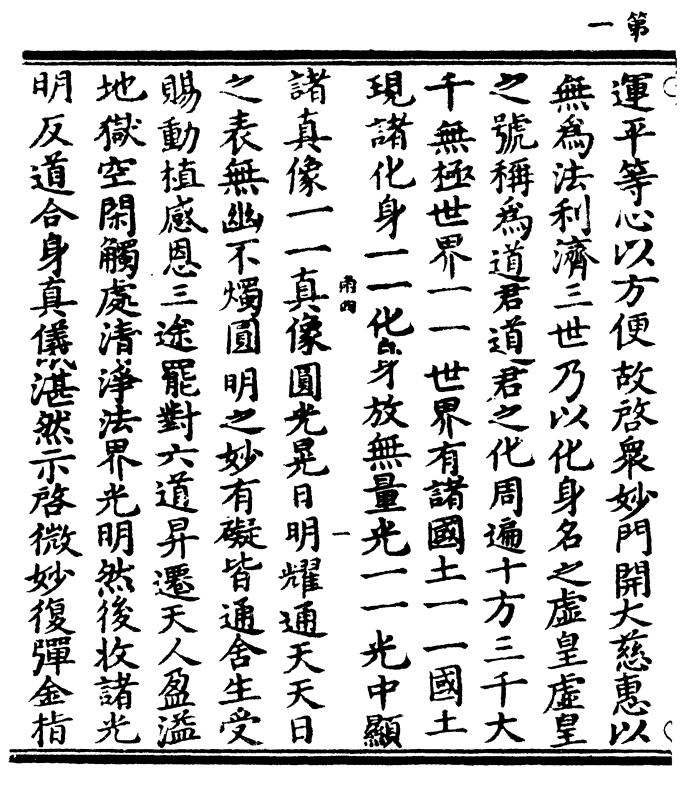 第一
運平等心以方便故啓衆妙門開大慈惠以
無爲法利濟三世乃以化身名之虛皇虛皇
之號稱爲道君道君之化周遍十方三千大
千無極世界一一世界有諸國土一一國土
現諸化身一一化身放無量光一一光中顯
諸真像一一真像圓光晃日明耀通天天日
之表無幽不燭圓明之妙有礙皆通舍生受
賜動植感恩三途罷對六道昇遷天人盈溢
地獄空閑觸處清淨法界光明然後收諸光
明反道合身真儀湛然示啓微妙復彈金指